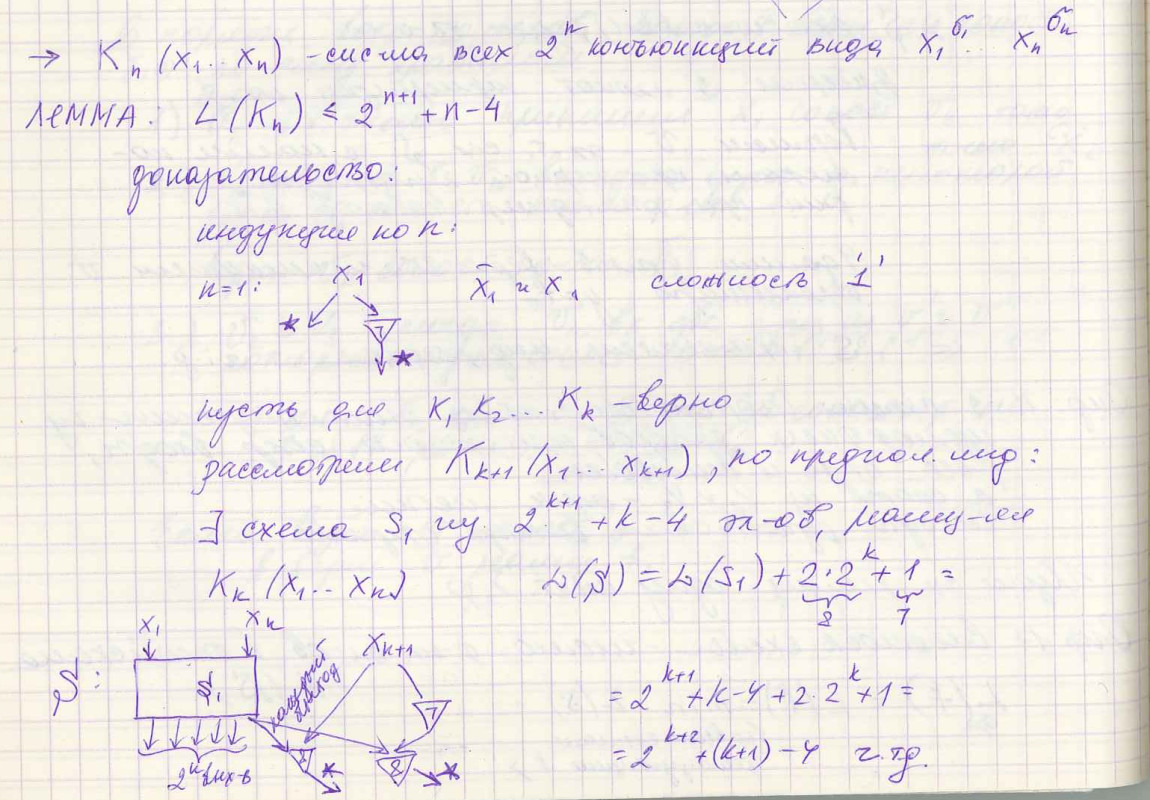 → Kₙ (x₁...xₙ) - систма всех 2ⁿ конъюнкций вида x₁^σ₁ ... xₙ^σₙ
ЛЕММА: L (Kₙ) ≤ 2^(n+1) + n - 4
доказательство:
индукция по n:
n=1: x₁ x̄₁ и x₁ сложность '1'
* ¬ *
пусть для K₁ K₂ ... Kₖ - верно
рассмотрим Kₖ₊₁ (x₁...xₖ₊₁), по предпол. инд:
∃ схема S₁ из 2^(k+1) + k - 4 эл-ов, реализу-ая
Kₖ (x₁...xₖ) L(S) = L(S₁) + 2·2^k + 1 =
& ¬
x₁ xₖ xₖ₊₁
S: S₁ каждый выход ¬
= 2^(k+1) + k - 4 + 2·2^k + 1 =
& * & *
2^k вых-в
= 2^(k+2) + (k+1) - 4 ч.т.д.